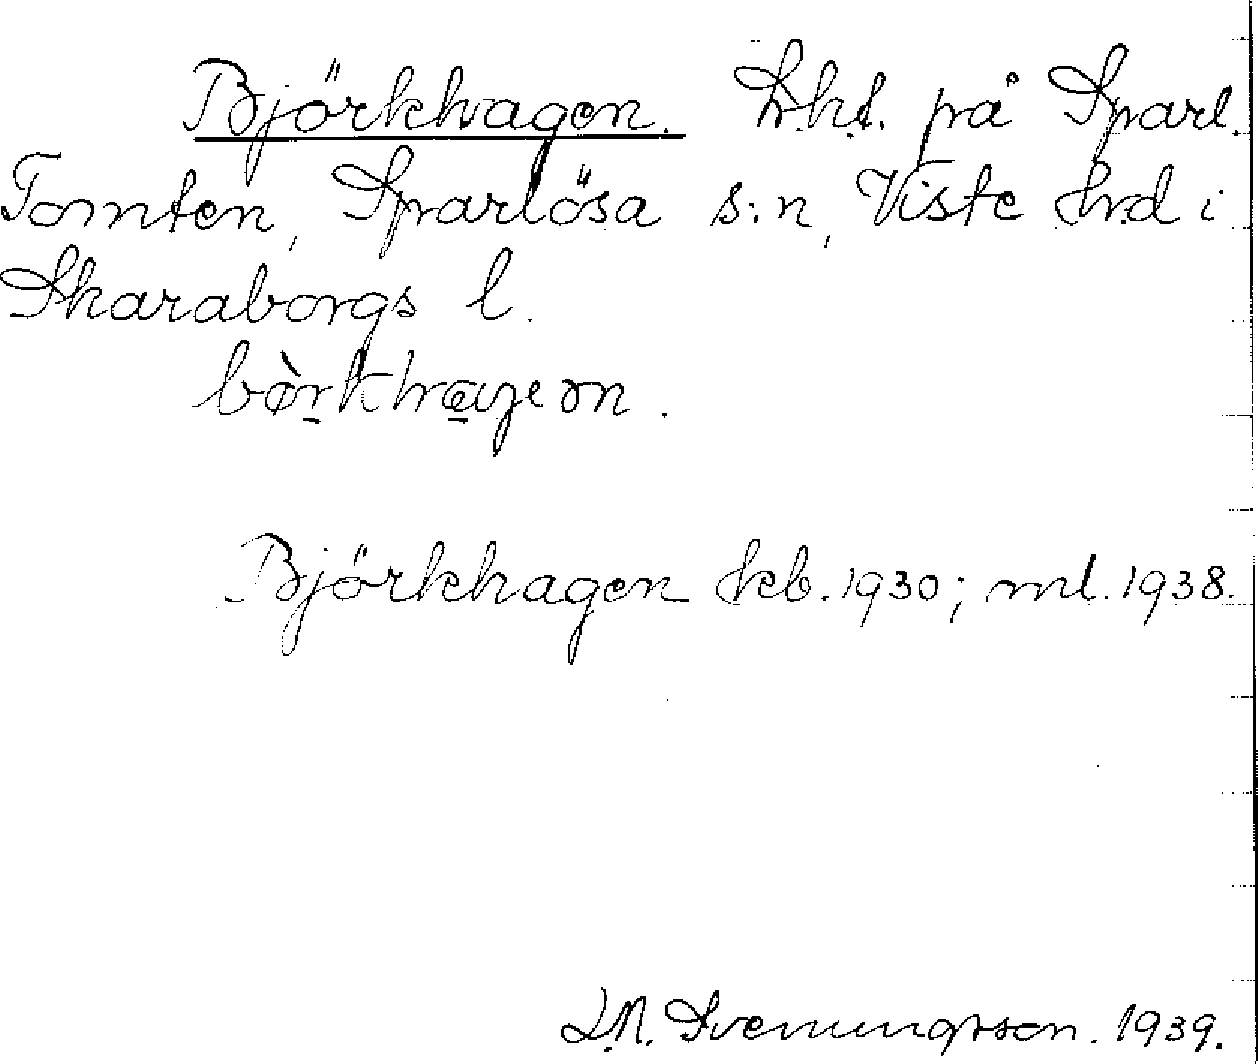 Björkhagen. L.h.t. på Sparl.
Tomten, Sparlösa s:n, Viste hrd i
Skaraborgs l.

Björkhagen hkb. 1930; ml. 1938.
Svenungsson. 1939.